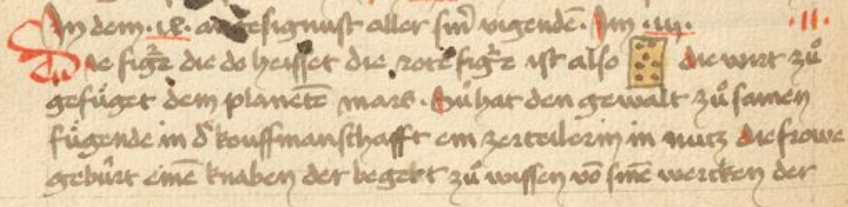 In dem .ix. an gesignust aller sinr vigendē. Im .iii. .II.
Die figr̄e die do heisset die rote figr̄e ist also die wirt zuͦ
gefuͤget dem planetē mars. Sü hat den gewalt zuͦ samen
fuͤgende in dʼ kouffmanschafft ein zerteilerin in nutz die frowe
gebürt einē knaben der begert zuͦ wissen vō sinē wercken der